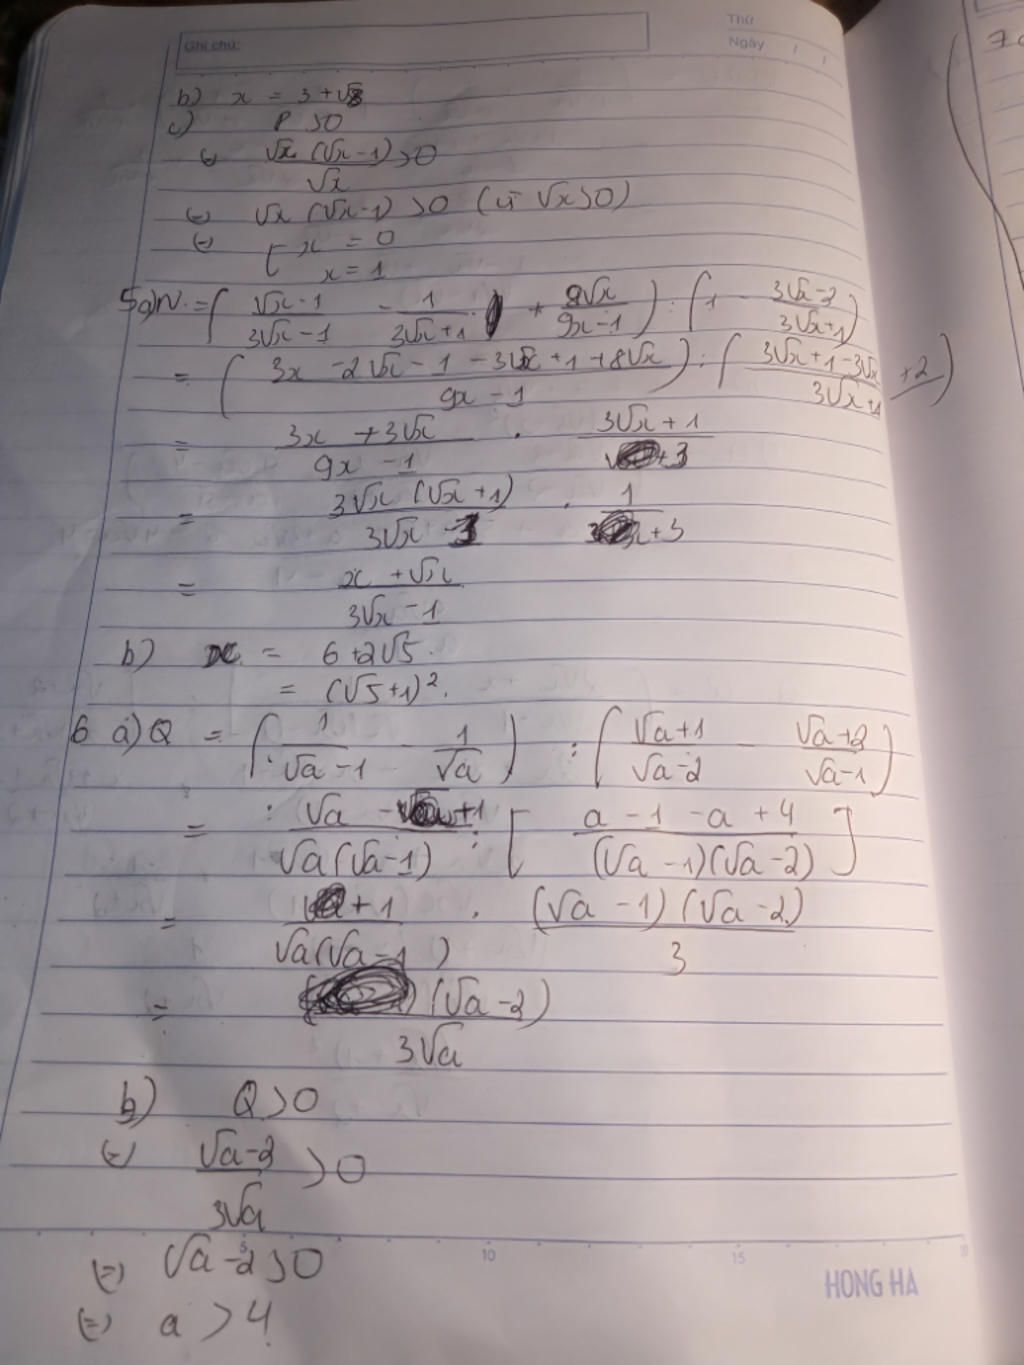 Ghi chú:
Thứ
Ngày / /
b) x = 3 + √8
c) P > 0
(=) √x (√x - 1) / √x > 0
(=) √x (√x - 1) > 0 (vì √x > 0)
(=) [ x = 0
x = 1
5a) N = ( (√x - 1)/(3√x - 1) - 1/(3√x + 1) + 8√x/(9x - 1) ) : ( 1 - (3√x - 2)/(3√x + 1) )
= ( (3x - 2√x - 1 - 3√x + 1 + 8√x)/(9x - 1) ) : ( (3√x + 1 - 3√x + 2)/(3√x + 1) )
= (3x + 3√x)/(9x - 1) . (3√x + 1)/3
= 3√x (√x + 1)/(3√x - 1) . 1/3
= (x + √x)/(3√x - 1)
b) x = 6 + 2√5.
= (√5 + 1)².
6 a) Q = ( 1/(√a - 1) - 1/√a ) : ( (√a + 1)/(√a - 2) - (√a + 2)/(√a - 1) )
= (√a - √a + 1)/(√a(√a - 1)) : [ (a - 1 - a + 4)/((√a - 1)(√a - 2)) ]
= 1/(√a(√a - 1)) . (√a - 1)(√a - 2)/3
= (√a - 2)/(3√a)
b) Q > 0
(=) (√a - 2)/(3√a) > 0
(=) √a - 2 > 0
(=) a > 4
5 10 15
HONG HA